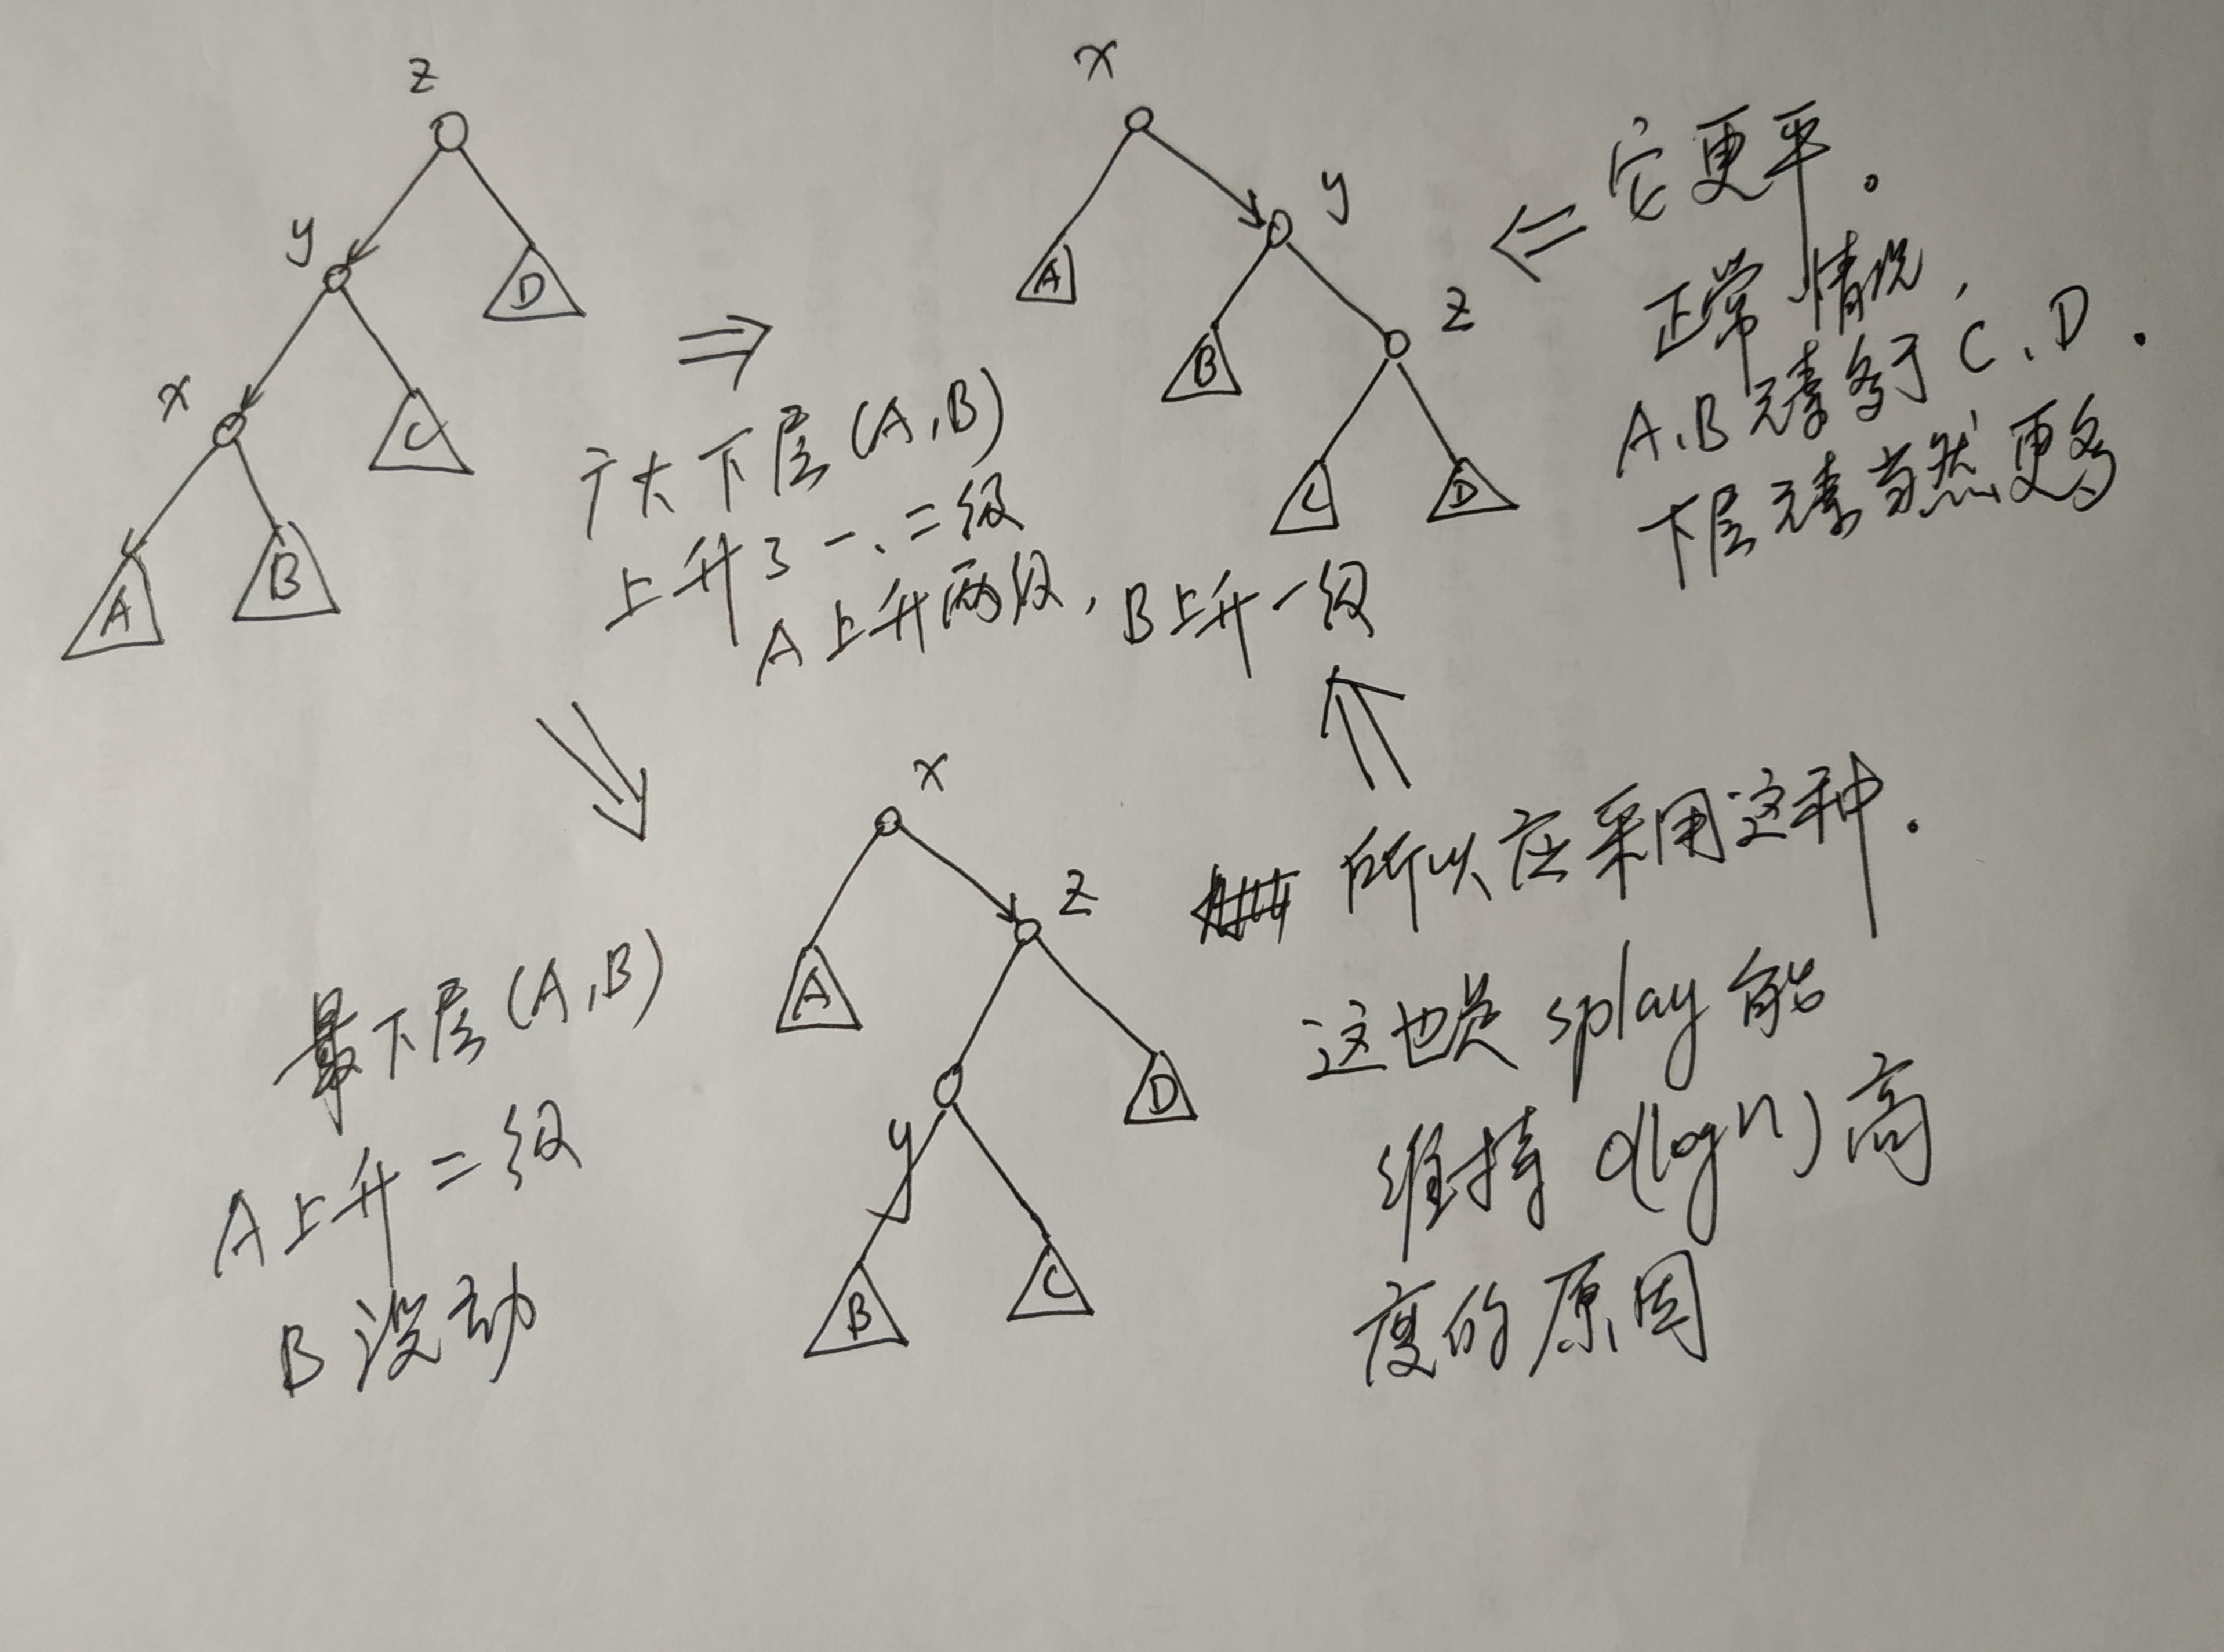 z
y
D
x
C
A
B
x
y
A
z
B
C
D
⇐ 它更平。
正常情况，
A、B元素多于C、D.
下层元素当然更多
⇒
广大下层(A,B)
上升了一、二级
A上升两级，B上升一级
x
z
A
y
D
B
C
最下层(A,B)
A上升二级
B没动
所以应采用这种.
这也是splay能
维持O(logn)高
度的原因